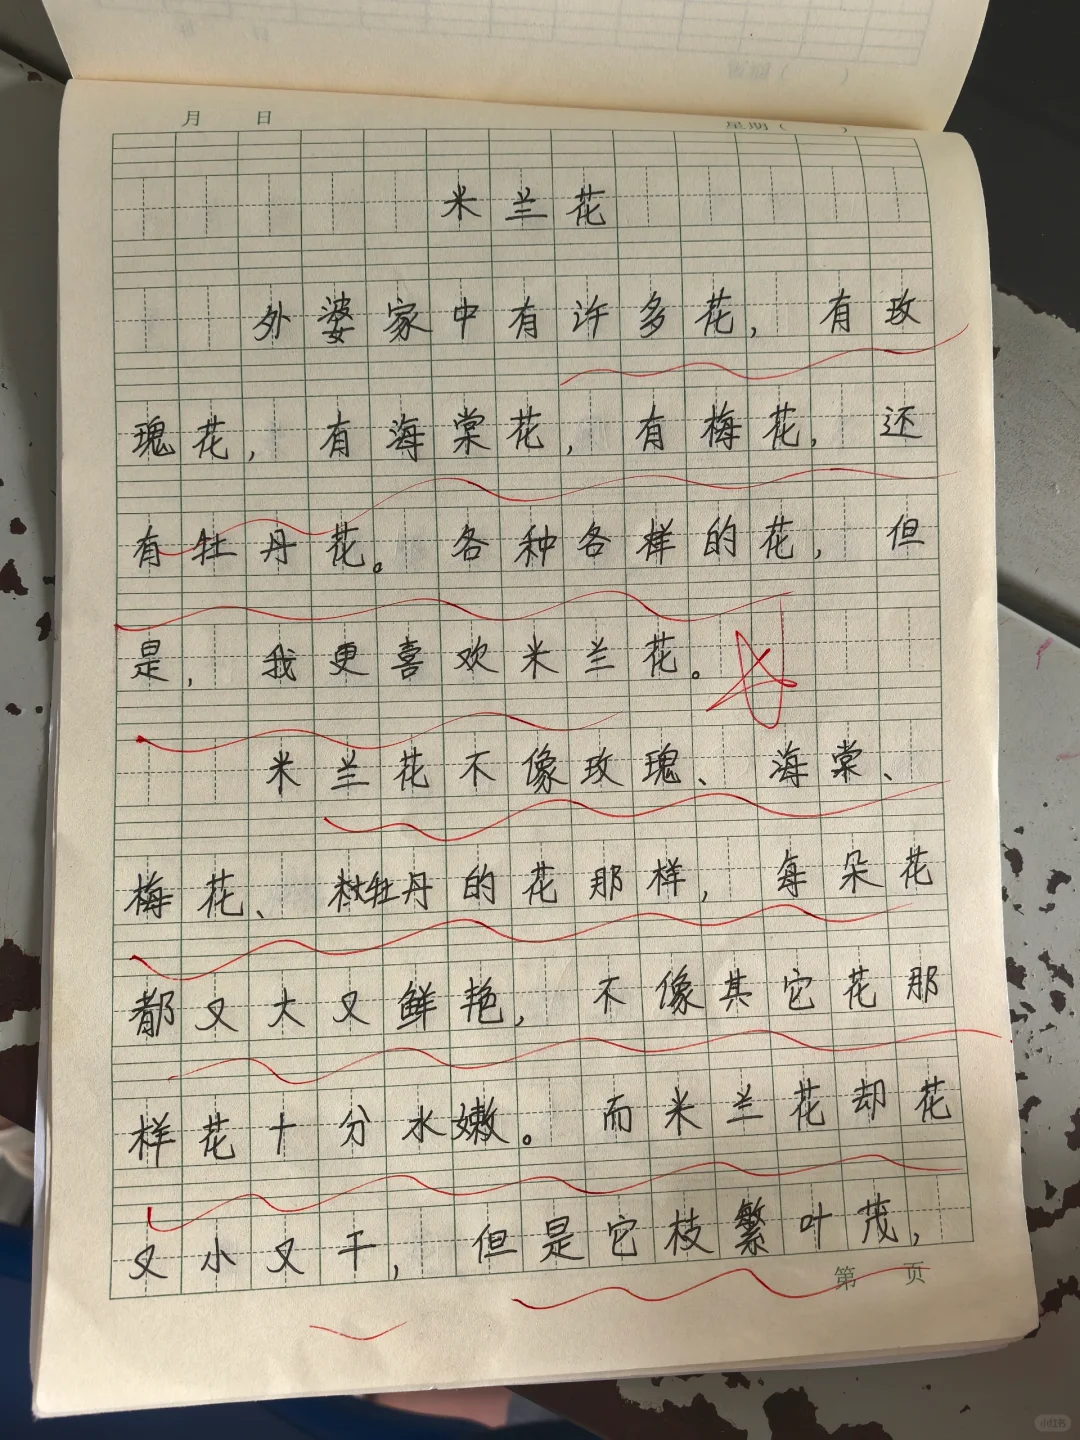 月 日 星期( )
米兰花
外婆家中有许多花，有玫
瑰花，有海棠花，有梅花，还
有牡丹花。各种各样的花，但
是，我更喜欢米兰花。
米兰花不像玫瑰、海棠、
梅花、牡丹的花那样，每朵花
都又大又鲜艳，不像其它花那
样花十分水嫩。而米兰花却花
又小又干，但是它枝繁叶茂，
第 页
小红书